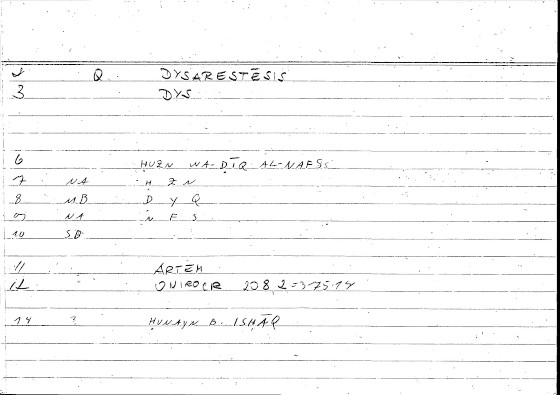 1 Q DYSARESTĒSIS
3 DYS
6 ḤUZN WA-ḌĪQ AL-NAFS
7 NA Ḥ Z N
8 MB Ḍ Y Q
9 NA N F S
10 SB
11 ARTEM
12 ONIROCR 208,2=375.14
14 ? ḤUNAYN B. ISḤĀQ